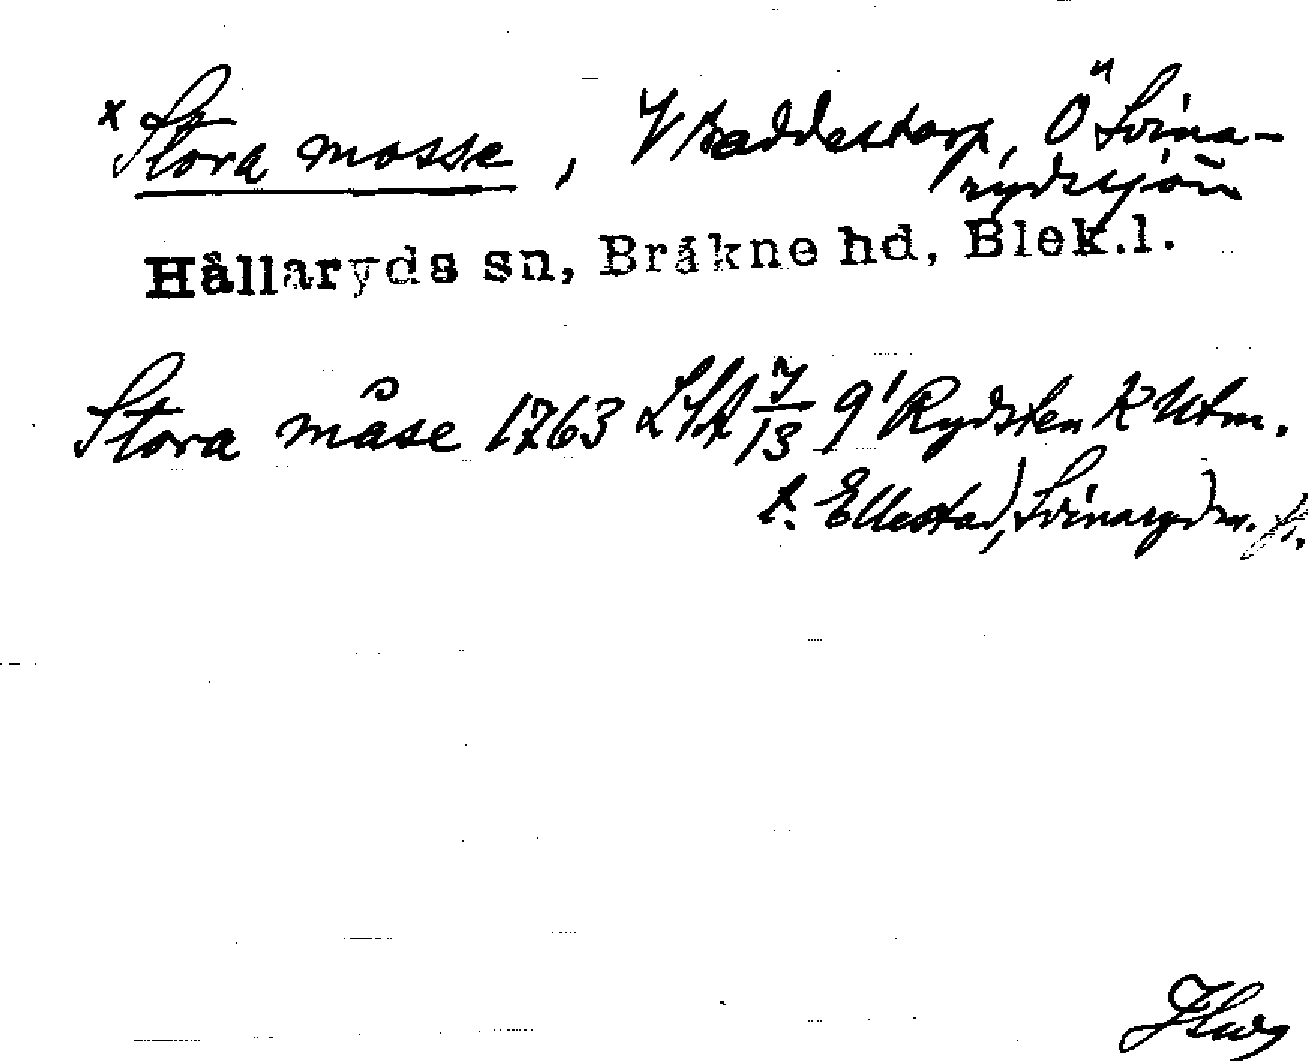 x Stora mosse, V Baddestorp, Ö Svina-
rydssjön
Hällaryds sn, Bräkne hd, Blek.l.
Stora måse 1763 LSA 7/13 9' Rydsten K Utm.
t. Ellestad, Svinaryd